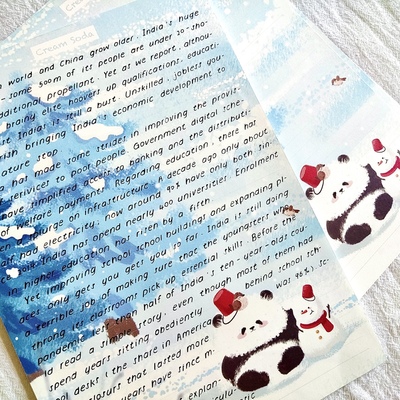 Cream Soda
world and China grow older, India's huge
some 500m of its people are under 20-sho-
dditional propellant. Yet as we report, althou-
brainy elite hoovers up qualifications, educati-
st Indians is still a bust. Unskilled, jobless you-
rish bringing India's economic development to
ature stop
has made some strides in improving the provis-
services to poor people. Government digital sche-
have simplified access to banking and the distributi-
of welfare payments. Regarding education, there has
en a splurge on infrastructure. A decade ago only about
half had electricity; now around 90% have both. Sin-
India has opened nearly 600 universities. Enrolment
in higher education has risen by a fifth.
Yet improving school buildings and expanding pl-
aces only gets you so far. India is still doing
a terrible job of making sure that the youngsters who
throng its classrooms pick up essential skills. Before the
pandemic less than half of India's ten-year-olds cou-
ld read a simple story, even though most of them had
spend years sitting obediently behind school sch-
ool desks (the share in America was 96%). Sc-
closures that lasted more
years have since m
explan-